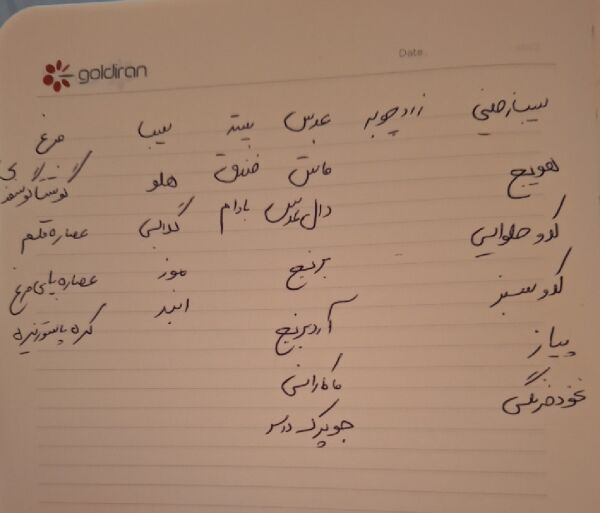 goldiran
Date
سیب زمینی زردچوبه عدس پسته سیب مرغ
هویج ماش فندق هلو گوشت گوسفندی
کدو حلوایی دال عدس بادام گلابی عصاره قلم
کدو سبز برنج موز عصاره پای مرغ
پیاز آرد برنج انبه کره پاستوریزه
نخود فرنگی ماکارانی
جو پرک